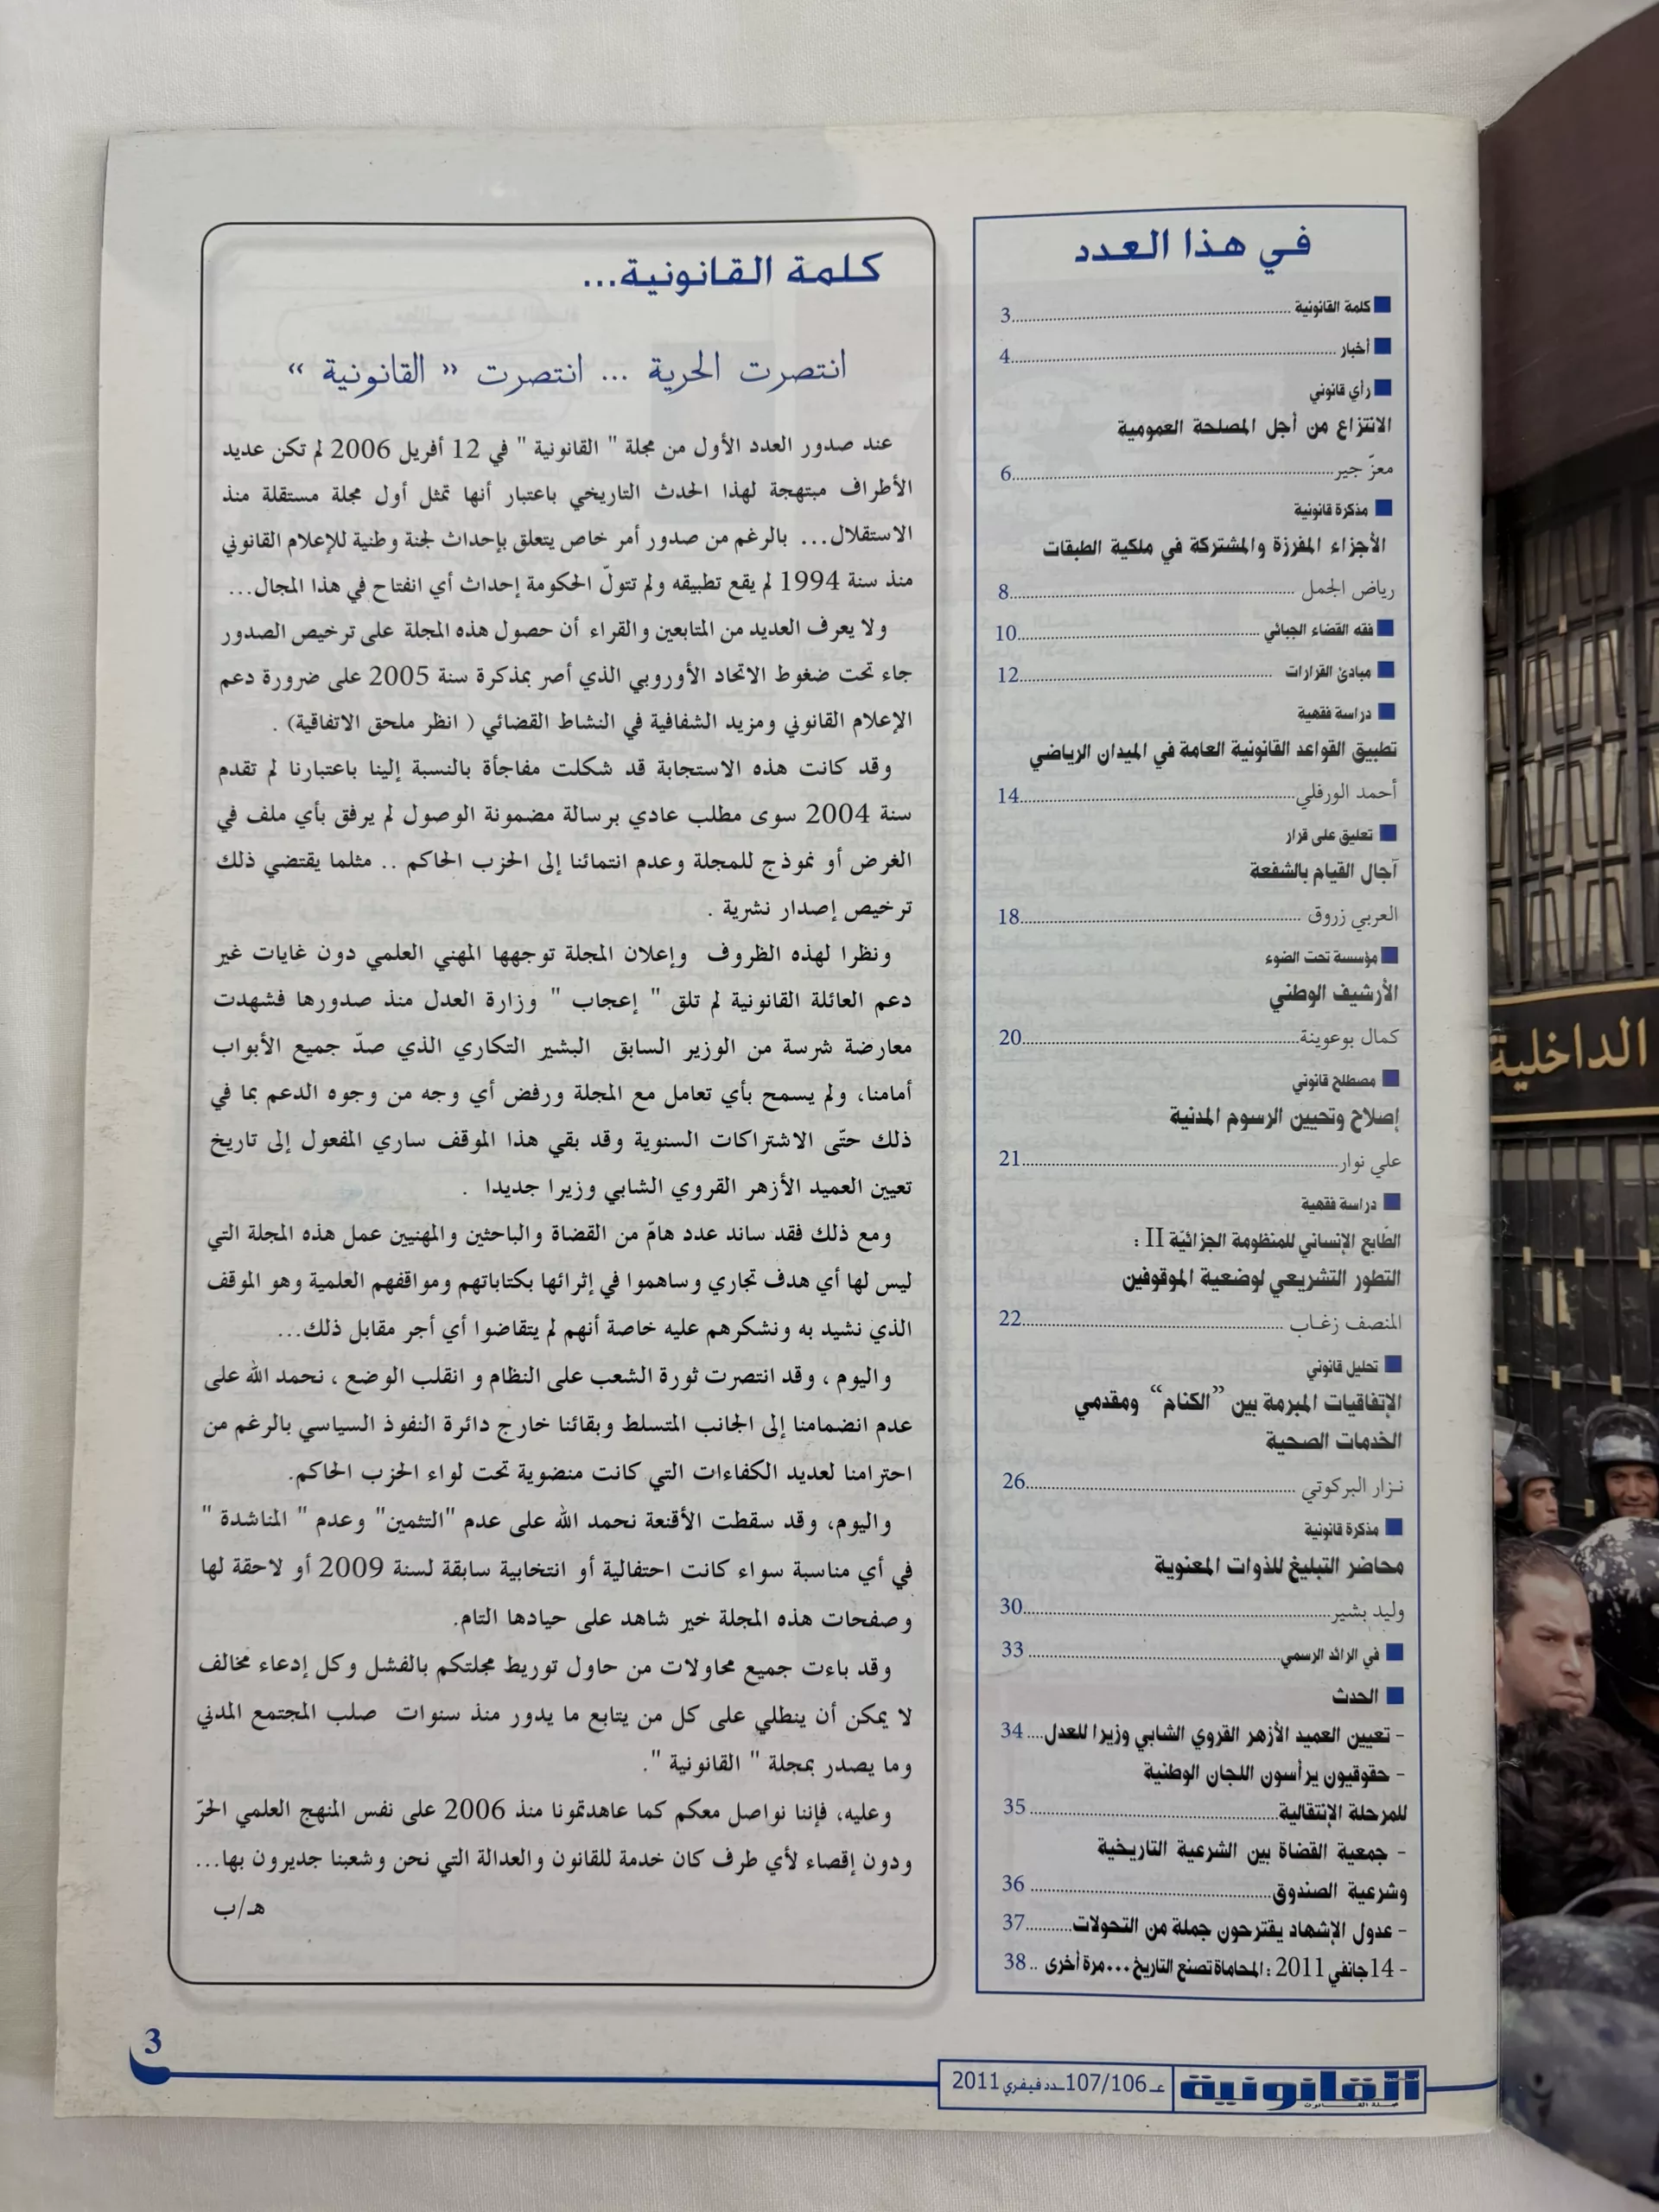 في هذا العدد
كلمة القانونية ........ 3
أخبار ........ 4
رأي قانوني
الانتزاع من أجل المصلحة العمومية
معزّ جير ........ 6
مذكرة قانونية
الأجزاء المفرزة والمشتركة في ملكية الطبقات
رياض الجمل ........ 8
فقه القضاء الجبائي ........ 10
مبادئ القرارات ........ 12
دراسة فقهية
تطبيق القواعد القانونية العامة في الميدان الرياضي
أحمد الورفلي ........ 14
تعليق على قرار
آجال القيام بالشفعة
العربي زروق ........ 18
مؤسسة تحت الضوء
الأرشيف الوطني
كمال بوعوينة ........ 20
مصطلح قانوني
إصلاح وتحيين الرسوم المدنية
علي نوار ........ 21
دراسة فقهية
الطّابع الإنساني للمنظومة الجزائيّة II :
التطور التشريعي لوضعية الموقوفين
المنصف زغـاب ........ 22
تحليل قانوني
الإتفاقيات المبرمة بين “الكنام” ومقدمي
الخدمات الصحية
نـزار البركوتي ........ 26
مذكرة قانونية
محاضر التبليغ للذوات المعنوية
وليد بشير ........ 30
في الرائد الرسمي ........ 33
الحدث
- تعيين العميد الأزهر القروي الشابي وزيرا للعدل .... 34
- حقوقيون يرأسون اللجان الوطنية
للمرحلة الإنتقالية ........ 35
- جمعية القضاة بين الشرعية التاريخية
وشرعية الصندوق ........ 36
- عدول الإشهاد يقترحون جملة من التحولات .......... 37
- 14 جانفي 2011 : المحاماة تصنع التاريخ ... مرة أخرى .. 38
كلمة القانونية...
انتصرت الحرية ... انتصرت « القانونية »
عند صدور العدد الأول من مجلة " القانونية " في 12 أفريل 2006 لم تكن عديد
الأطراف مبتهجة لهذا الحدث التاريخي باعتبار أنها تمثل أول مجلة مستقلة منذ
الاستقلال... بالرغم من صدور أمر خاص يتعلق بإحداث لجنة وطنية للإعلام القانوني
منذ سنة 1994 لم يقع تطبيقه ولم تتولّ الحكومة إحداث أي انفتاح في هذا المجال...
ولا يعرف العديد من المتابعين والقراء أن حصول هذه المجلة على ترخيص الصدور
جاء تحت ضغوط الاتحاد الأوروبي الذي أصر بمذكرة سنة 2005 على ضرورة دعم
الإعلام القانوني ومزيد الشفافية في النشاط القضائي ( انظر ملحق الاتفاقية) .
وقد كانت هذه الاستجابة قد شكلت مفاجأة بالنسبة إلينا باعتبارنا لم تقدم
سنة 2004 سوى مطلب عادي برسالة مضمونة الوصول لم يرفق بأي ملف في
الغرض أو نموذج للمجلة وعدم انتمائنا إلى الحزب الحاكم .. مثلما يقتضي ذلك
ترخيص إصدار نشرية .
ونظرا لهذه الظروف وإعلان المجلة توجهها المهني العلمي دون غايات غير
دعم العائلة القانونية لم تلق " إعجاب " وزارة العدل منذ صدورها فشهدت
معارضة شرسة من الوزير السابق البشير التكاري الذي صدّ جميع الأبواب
أمامنا، ولم يسمح بأي تعامل مع المجلة ورفض أي وجه من وجوه الدعم بما في
ذلك حتّى الاشتراكات السنوية وقد بقي هذا الموقف ساري المفعول إلى تاريخ
تعيين العميد الأزهر القروي الشابي وزيرا جديدا .
ومع ذلك فقد ساند عدد هامّ من القضاة والباحثين والمهنيين عمل هذه المجلة التي
ليس لها أي هدف تجاري وساهموا في إثرائها بكتاباتهم ومواقفهم العلمية وهو الموقف
الذي نشيد به ونشكرهم عليه خاصة أنهم لم يتقاضوا أي أجر مقابل ذلك...
واليوم ، وقد انتصرت ثورة الشعب على النظام و انقلب الوضع ، نحمد الله على
عدم انضمامنا إلى الجانب المتسلط وبقائنا خارج دائرة النفوذ السياسي بالرغم من
احترامنا لعديد الكفاءات التي كانت منضوية تحت لواء الحزب الحاكم.
واليوم، وقد سقطت الأقنعة نحمد الله على عدم "التثمين" وعدم " المناشدة "
في أي مناسبة سواء كانت احتفالية أو انتخابية سابقة لسنة 2009 أو لاحقة لها
وصفحات هذه المجلة خير شاهد على حيادها التام.
وقد باءت جميع محاولات من حاول توريط مجلتكم بالفشل وكل إدعاء مخالف
لا يمكن أن ينطلي على كل من يتابع ما يدور منذ سنوات صلب المجتمع المدني
وما يصدر بمجلة " القانونية ".
وعليه، فإننا نواصل معكم كما عاهدتمونا منذ 2006 على نفس المنهج العلمي الحرّ
ودون إقصاء لأي طرف كان خدمة للقانون والعدالة التي نحن وشعبنا جديرون بها...
هـ/ب
القانونية
عـ 107/106ـدد فيفري 2011
3
الداخلية